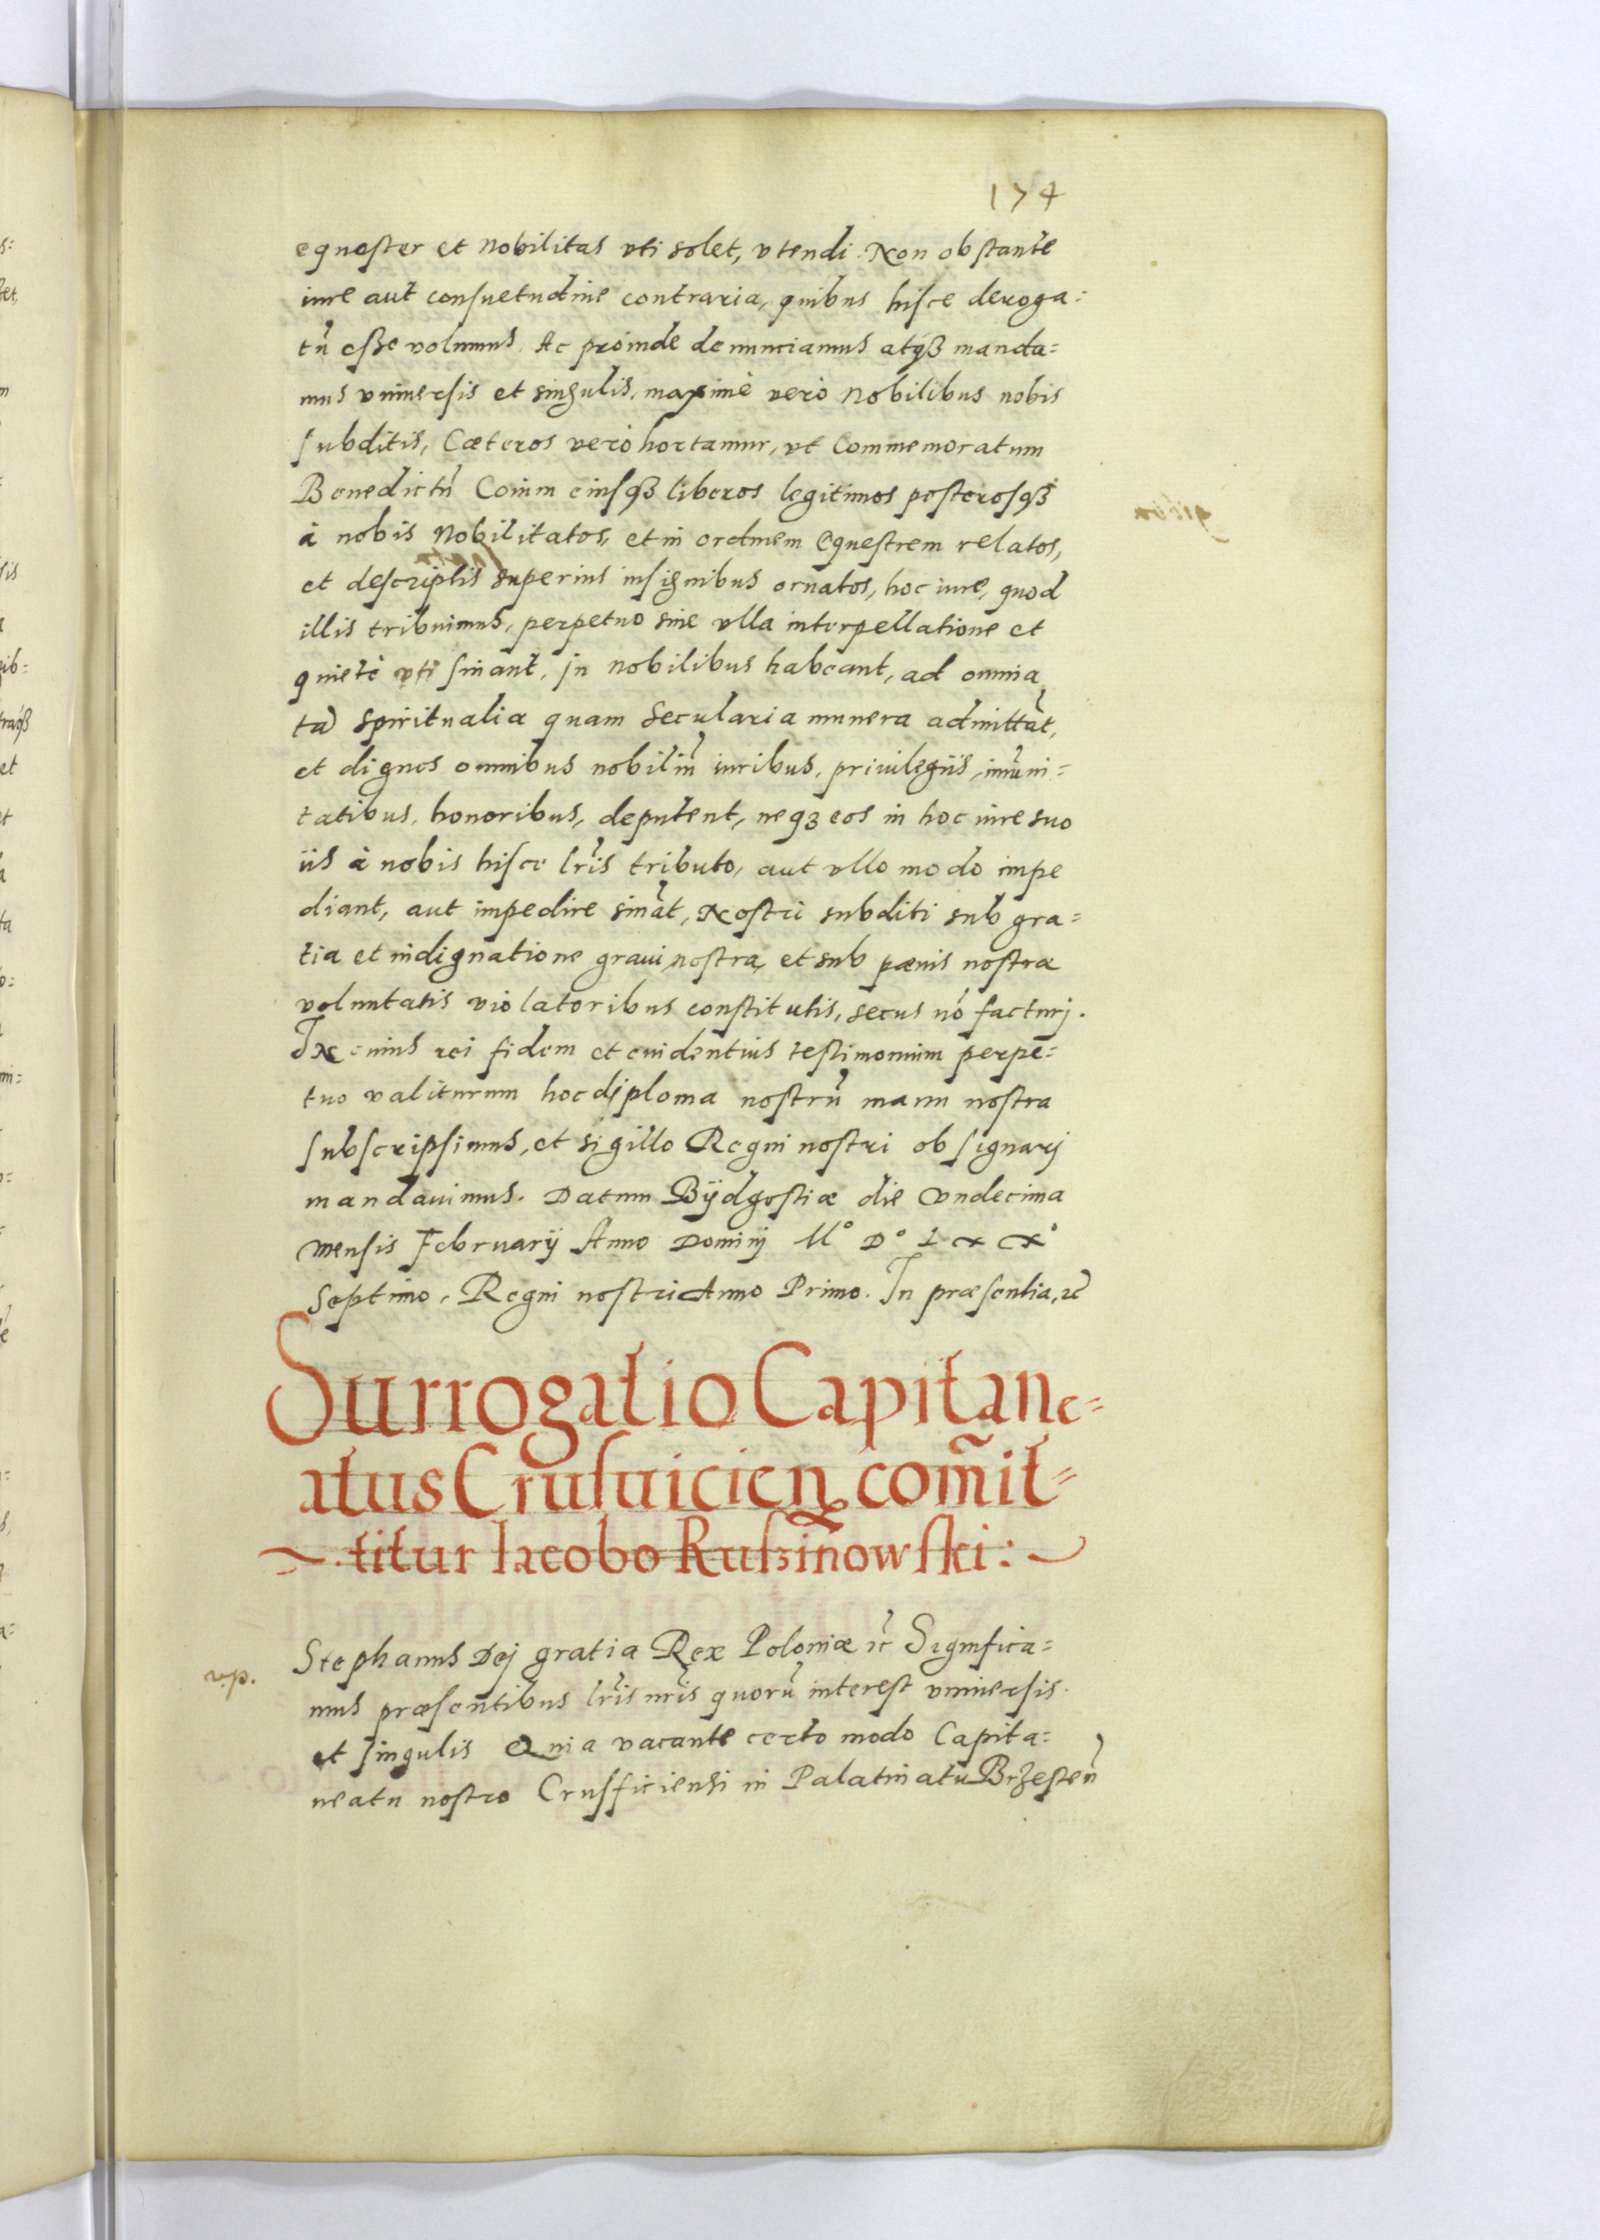 174
equester et Nobilitas vti solet, vtendi. Non obstante
iure aut consuetudine contraria, quibus hisce deroga=
tũ esse volumus. Ac proinde denunciamus atqȝ manda=
mus vniuersis et singulis, maximè verò Nobilibus nobis
subditis, Cæteros verò hortamur, vt Commemoratum
Benedictũ Coium eiusqȝ liberos legitimos posterosqȝ
à nobis Nobilitatos, et in ordinem Equestrem relatos,
et descriptis superius insignibus ornatos, hoc iure, quod
illis tribuimus, perpetuo sine vlla interpellatione et
quietè vti sinant, in Nobilibus habeant, ad omnia
tã spiritualia quam secularia munera admittãt,
et dignos omnibus nobiliũ iuribus, priuilegiis, imũni=
tatibus, honoribus, deputent, neqȝ eos in hoc iure suo
iis à nobis hisce lr̃is tributo, aut vllo modo impe
diant, aut impedire sinãt, Nostri subditi sub gra=
tia et indignatione graui nostra, et sub pœnis nostræ
voluntatis violatoribus constitutis, secus nõ facturj.
In cuius rei fidem et euidentius testimonium perpe=
tuo valiturum hoc diploma nostrũ manu nostra
subscripsimus, et sigillo Regni nostri obsignarj
mandauimus. Datum Bÿdgostiæ die vndecima
mensis Februarÿ Anno Dominj M° D° LXX°
Septimo, Regni nostri Anno Primo. In præsentia, ꝛc̃
Surrogatio Capitane=
atus Crusuicien̄ com̃it=
titur Iacobo Rusʒinowski:
v.p.
Stephanus Dej gratia Rex Poloniæ ꝛc̃ Significa=
mus præsentibus lr̃is nr̃is quorũ interest vniuersis.
et singulis Quia vacante certo modo Capita=
neatu nostro Crusficiensi in Palatinatu Brzesteñ